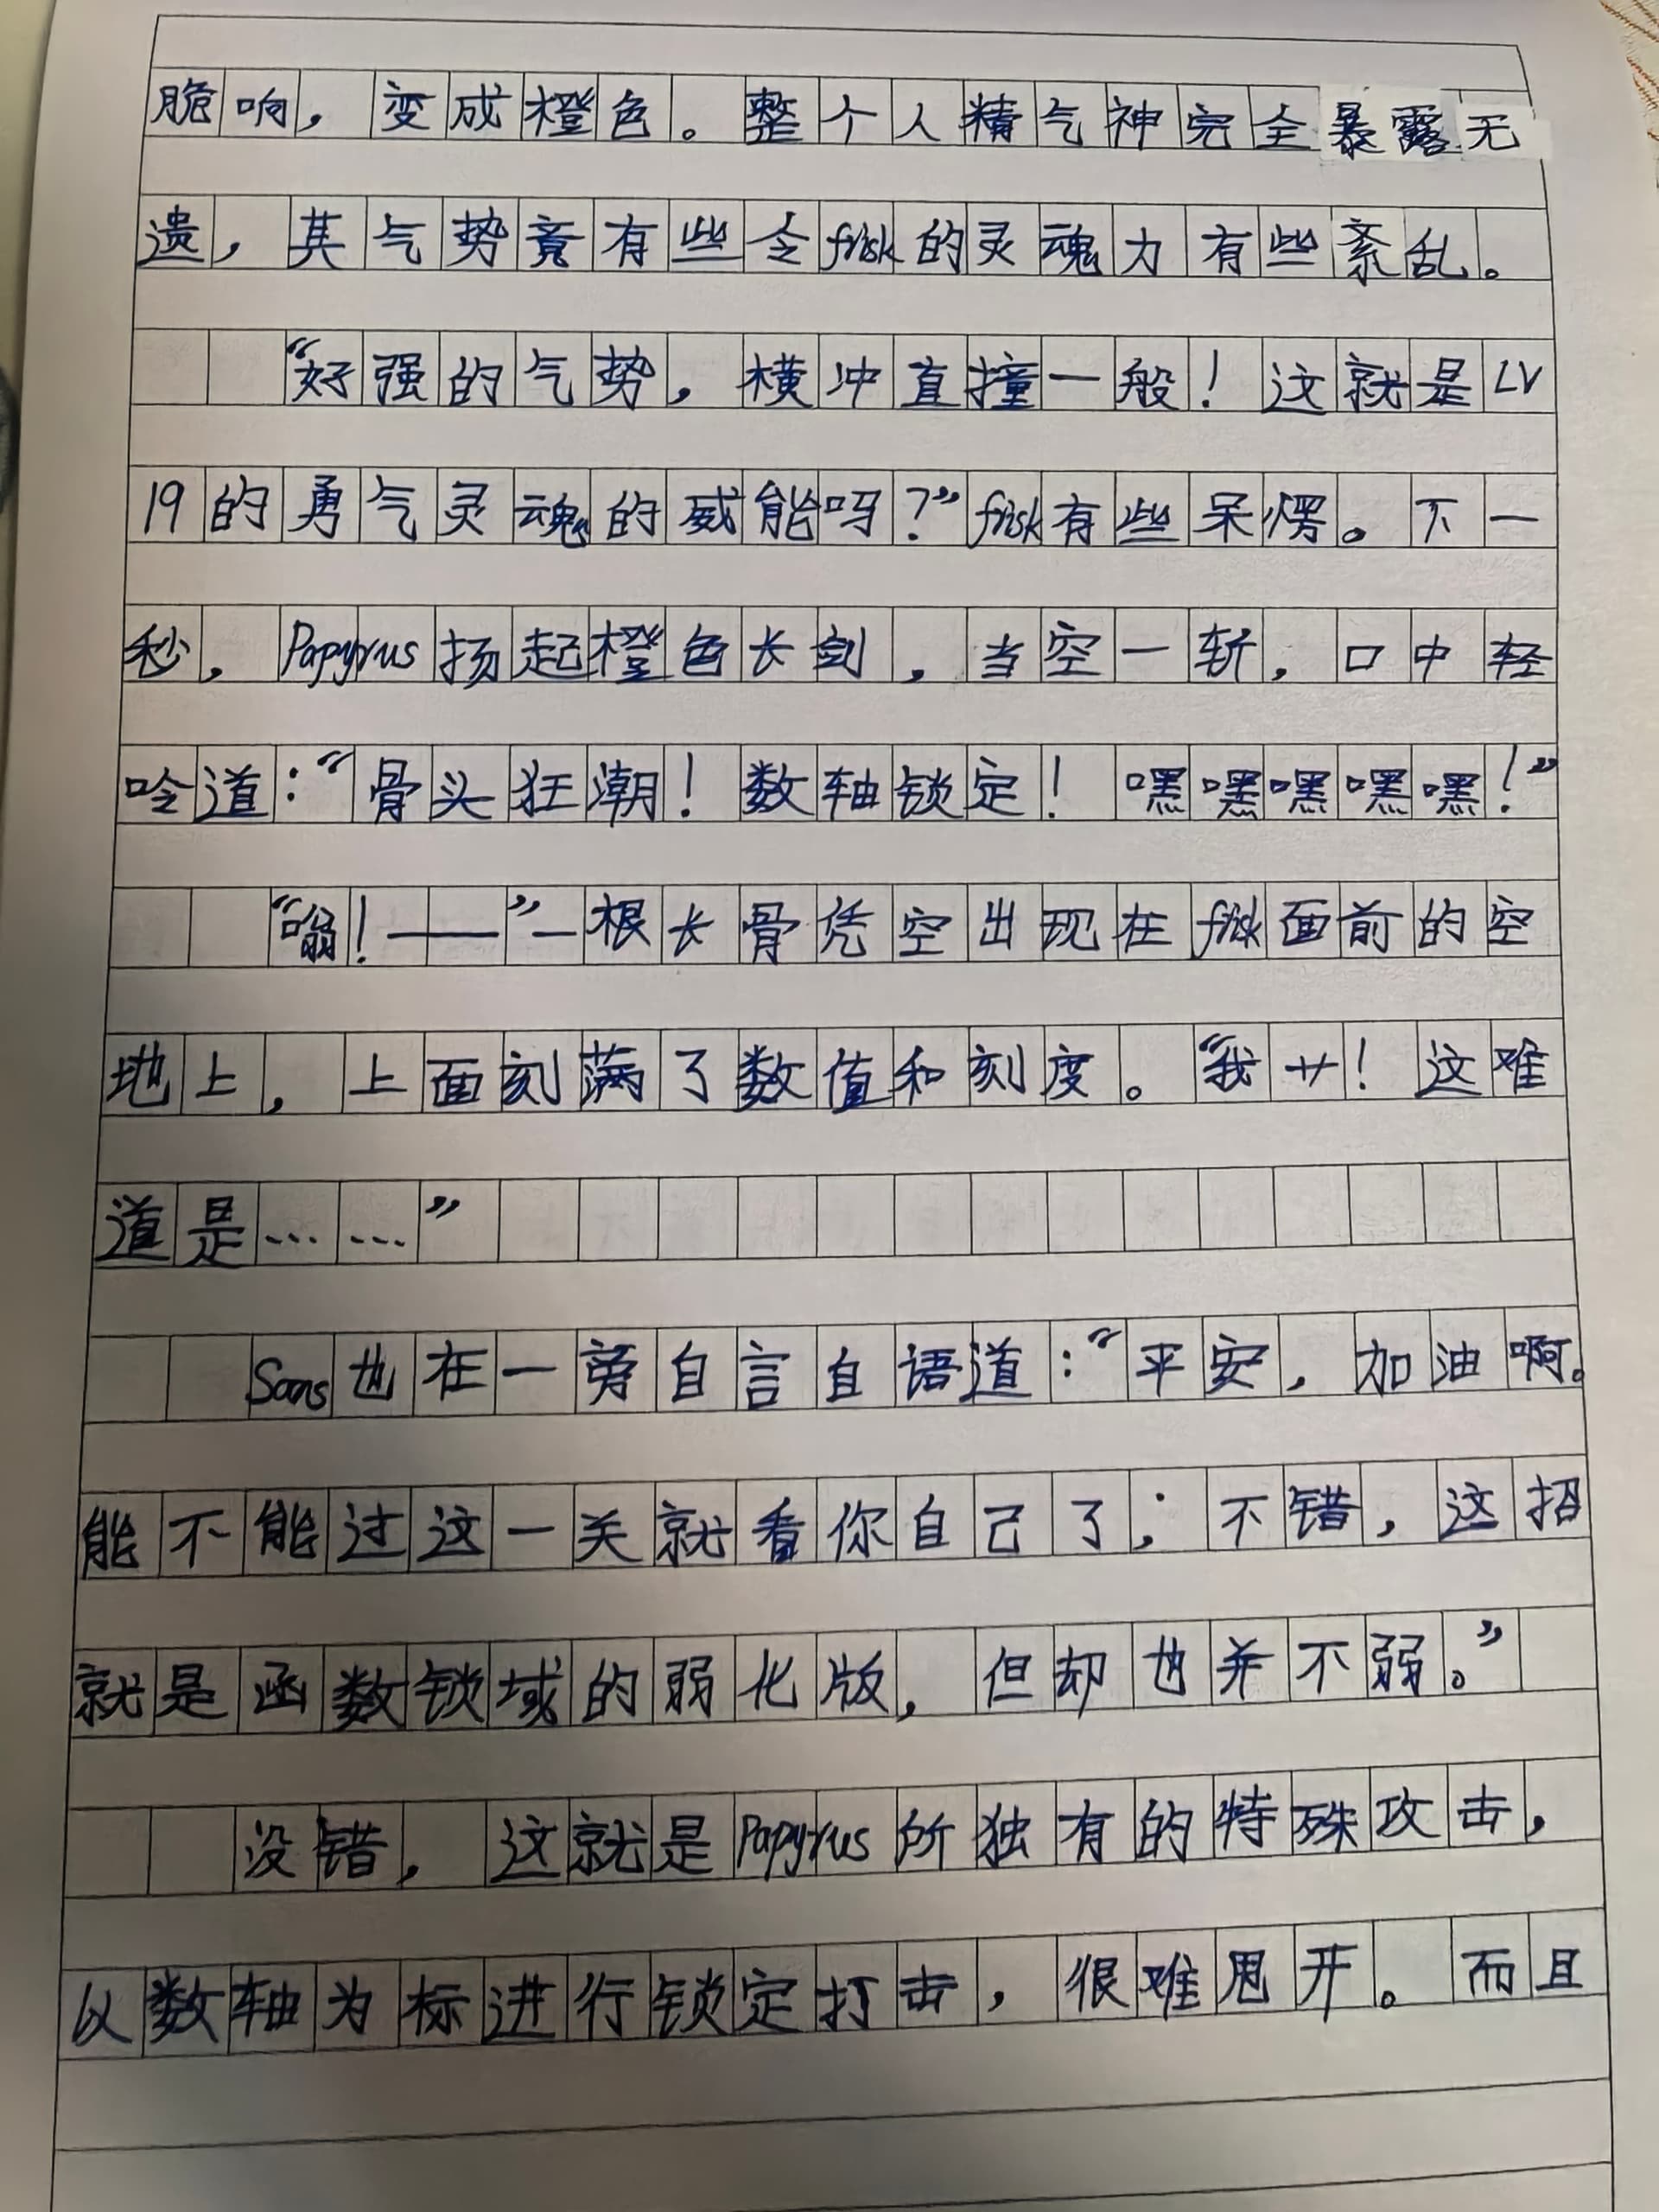 脆响，变成橙色。整个人精气神完全暴露无
遗，其气势竟有些令frisk的灵魂力有些紊乱。
“好强的气势，横冲直撞一般！这就是LV
19的勇气灵魂的威能吗？”frisk有些呆愣。下一
秒，Papyrus扬起橙色长剑，当空一斩，口中轻
吟道：“骨头狂潮！数轴锁定！嘿嘿嘿嘿嘿！”
“嗡！——”一根长骨凭空出现在frisk面前的空
地上，上面刻满了数值和刻度。“我艹！这难
道是……”
Sans也在一旁自言自语道：“平安，加油啊。
能不能过这一关就看你自己了；不错，这招
就是函数锁域的弱化版，但却也并不弱。”
没错，这就是Papyrus所独有的特殊攻击，
以数轴为标进行锁定打击，很难甩开。而且